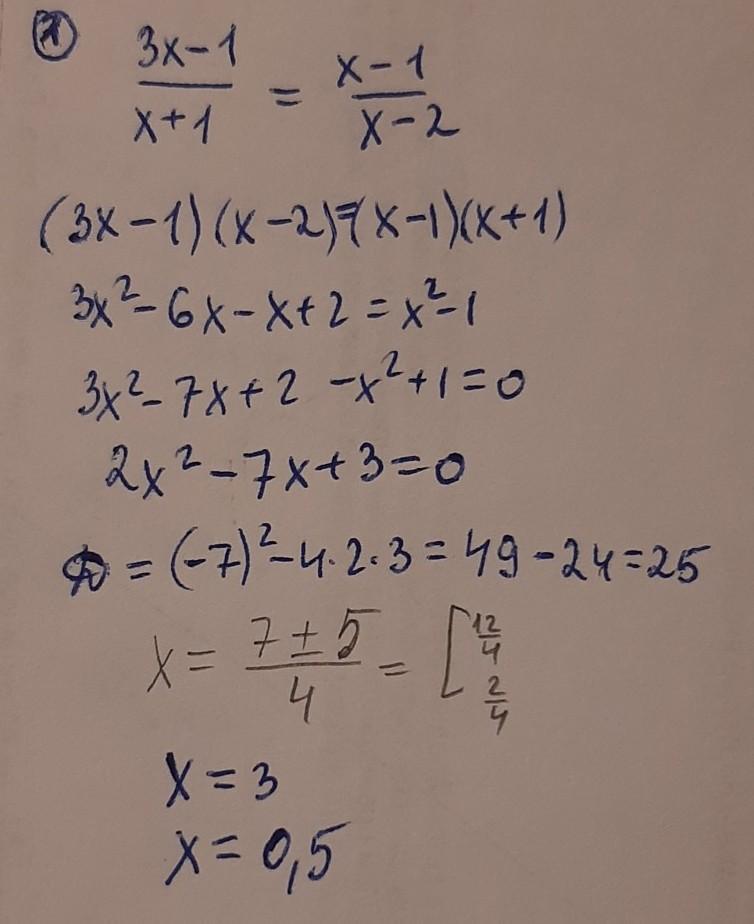 ① 3x-1/x+1 = x-1/x-2
(3x-1)(x-2)=(x-1)(x+1)
3x²-6x-x+2=x²-1
3x²-7x+2-x²+1=0
2x²-7x+3=0
D=(-7)²-4·2·3=49-24=25
x=7±5/4=[12/4 2/4
x=3
x=0,5